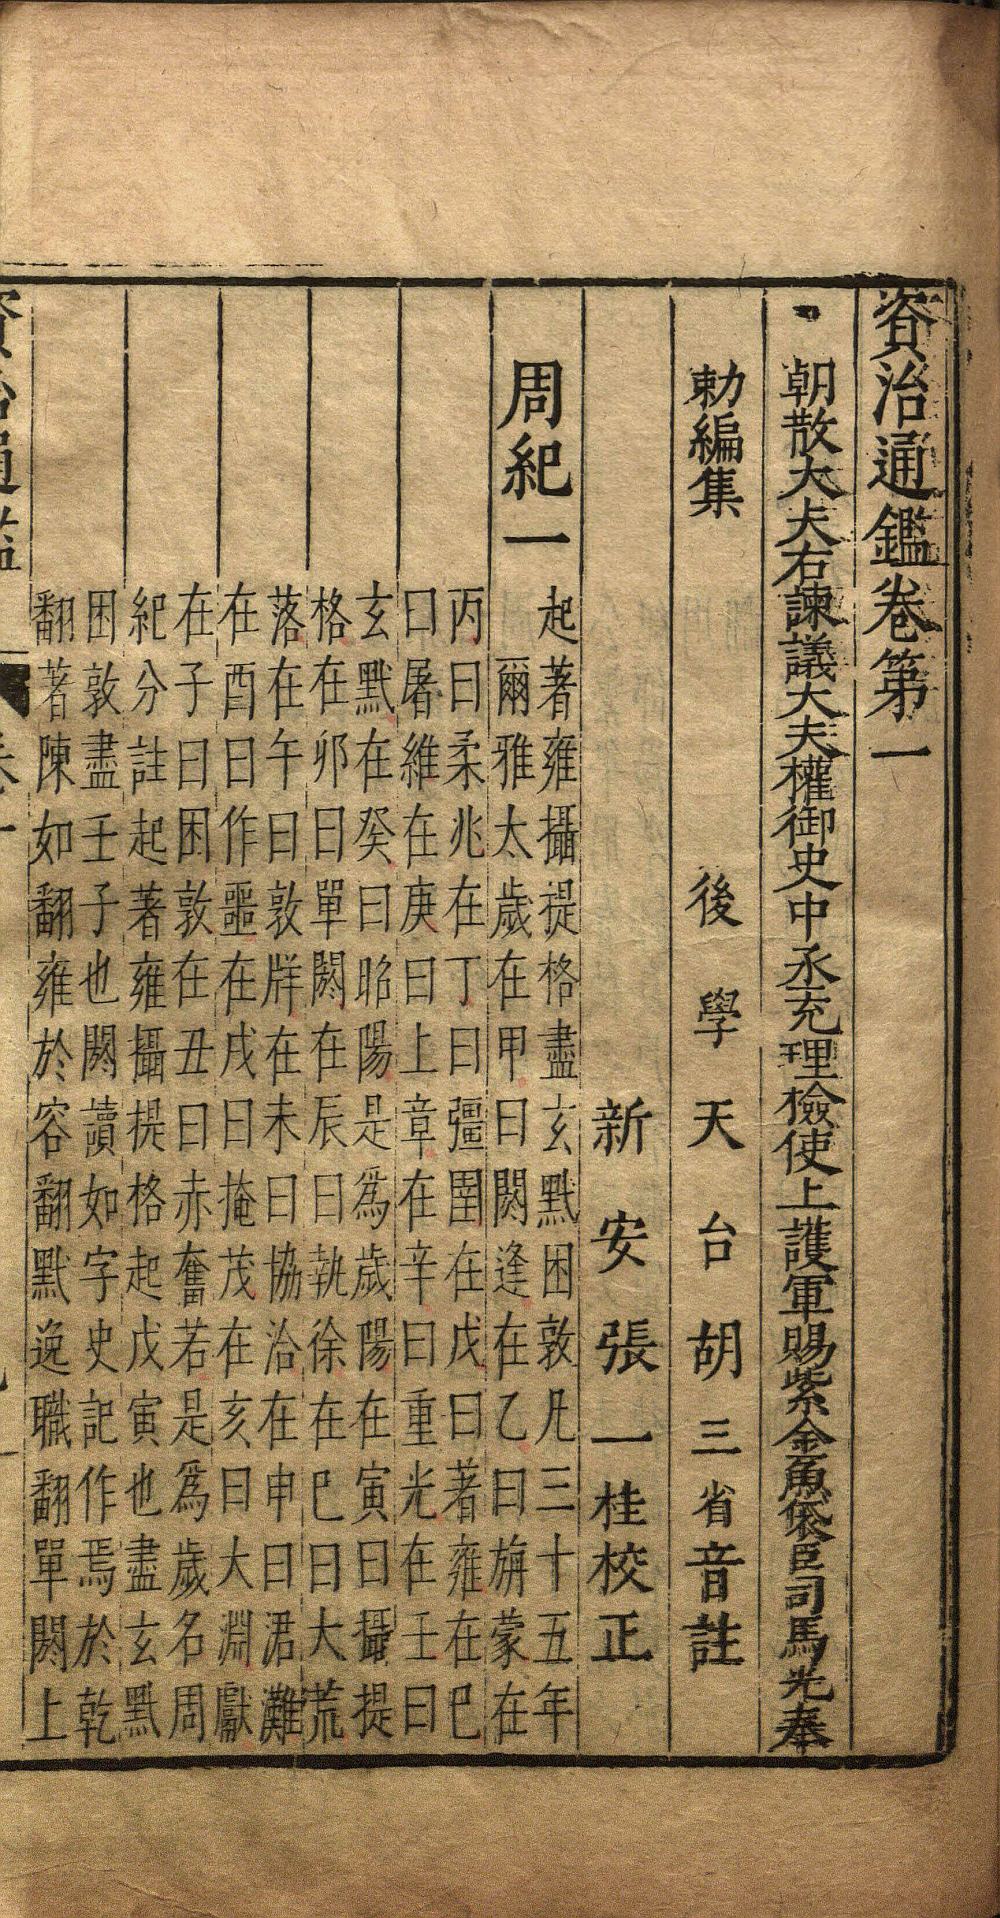 資治通鑑卷第一
朝散大夫右諫議大夫權御史中丞充理檢使上護軍賜紫金魚袋臣司馬光奉
勅編集
後學天台胡三省音註
新安張一桂校正
周紀一
起著雍攝提格盡玄黓困敦凡三十五年
爾雅太歲在甲曰閼逢在乙曰旃蒙在
丙曰柔兆在丁曰彊圉在戊曰著雍在巳
曰屠維在庚曰上章在辛曰重光在壬曰
玄黓在癸曰昭陽是爲歲陽在寅曰攝提
格在卯曰單閼在辰曰執徐在巳曰大荒
落在午曰敦牂在未曰協洽在申曰涒灘
在酉曰作噩在戌曰掩茂在亥曰大淵獻
在子曰困敦在丑曰赤奮若是爲歲名周
紀分註起著雍攝提格起戊寅也盡玄黓
困敦盡壬子也閼讀如字史記作焉於乾
翻著陳如翻雍於容翻黓逸職翻單閼上
資治通鑑
卷一